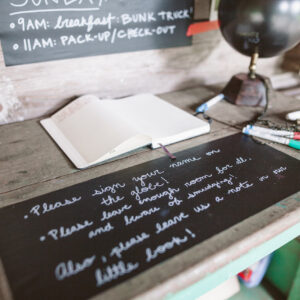 SUNDAY:
• 9AM: breakfast: BUNK TRUCK!
• 11AM: PACK-UP/CHECK-OUT
• Please sign your name on
the globe!
• Please leave enough room for all
and beware of smudging!
Also, please leave us a note in our
little book!